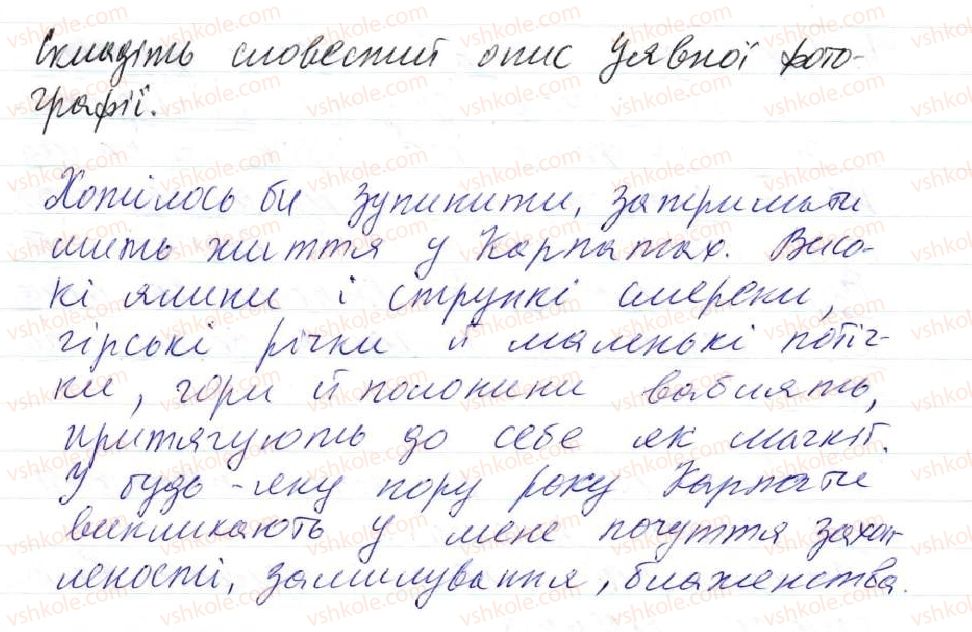 Складіть словесний опис уявної фото-
графії.
Хотілось би зупинити, затримати
мить життя у Карпатах. Висо-
кі ялини і стрункі смереки,
гірські річки й маленькі потіч-
ки, гори й полонини ваблять,
притягують до себе як магніт.
У будь-яку пору року Карпати
викликають у мене почуття захоп
леності, замилування, блаженства.
vshkole.com